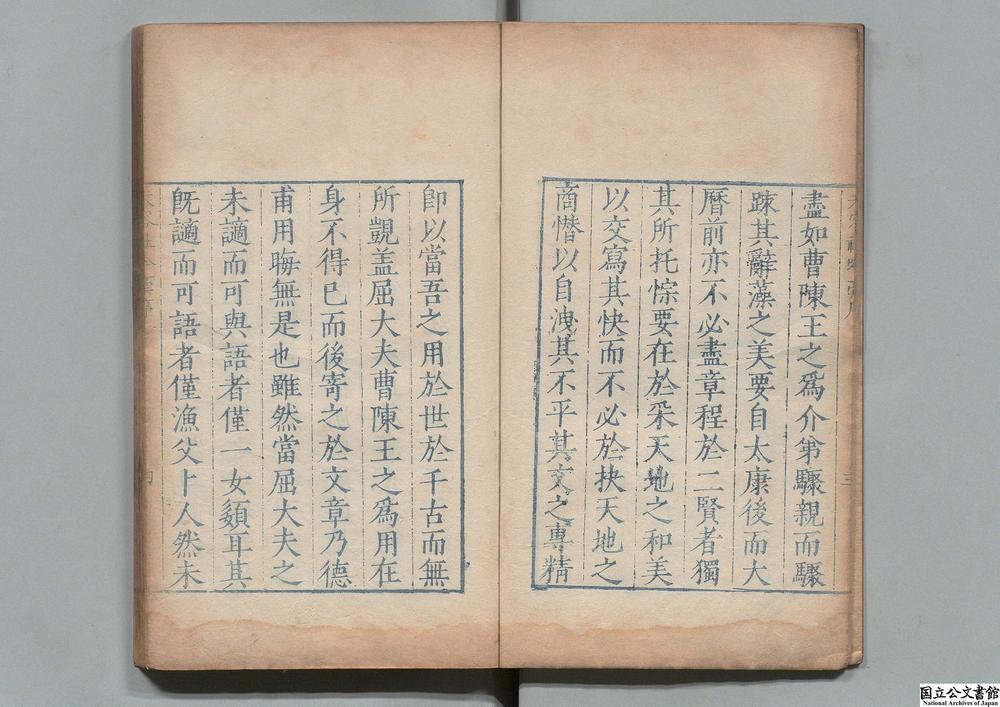 盡如曹陳王之爲介第驟親而驟
踈其辭藻之美要自太康後而大
曆前亦不必盡章程於二賢者獨
其所托悰要在於采天地之和美
以交寫其快而不必於抉天地之
商憯以自洩其不平其文之專精
三
卽以當吾之用於世於千古而無
所覬盖屈大夫曹陳王之爲用在
身不得已而後寄之於文章乃德
甫用晦無是也雖然當屈大夫之
未讁而可與語者僅一女嬃耳其
旣讁而可語者僅漁父卜人然未
四
国立公文書館
National Archives of Japan